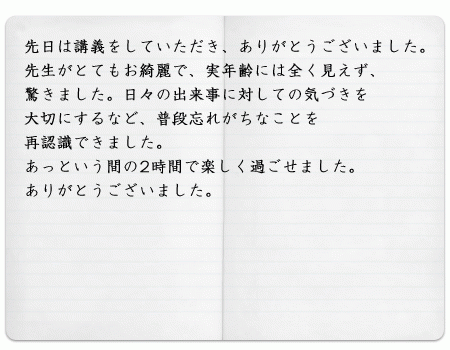 先日は講義をしていただき、ありがとうございました。
先生がとてもお綺麗で、実年齢には全く見えず、
驚きました。日々の出来事に対しての気づきを
大切にするなど、普段忘れがちなことを
再認識できました。
あっという間の2時間で楽しく過ごせました。
ありがとうございました。